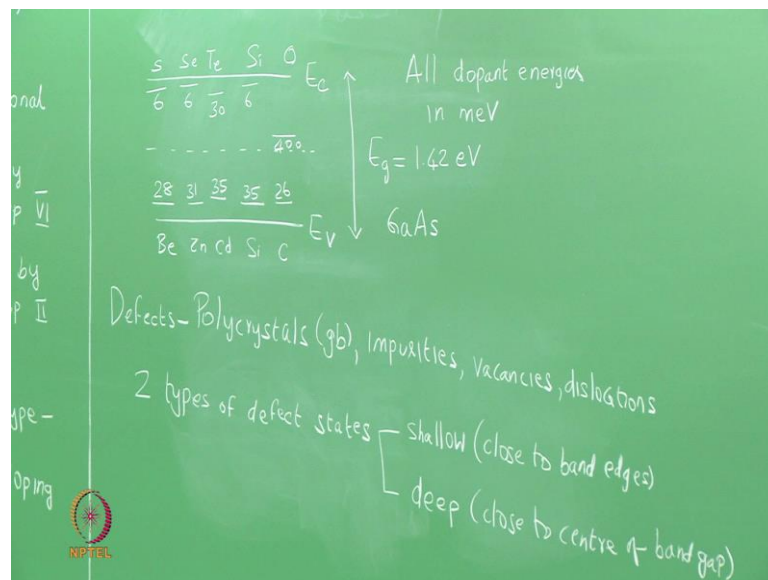 onal
y
P VI
by
P II
ype-
oping
S Se Te Si O Ec
6 6 30 6
400
28 31 35 35 26
Be Zn Cd Si C Ev
All dopant energies
in meV
Eg = 1.42 eV
GaAs
Defects- Polycrystals (gb), impurities, vacancies, dislocations
2 types of defect states
shallow (close to band edges)
deep (close to centre of band gap)
NPTEL